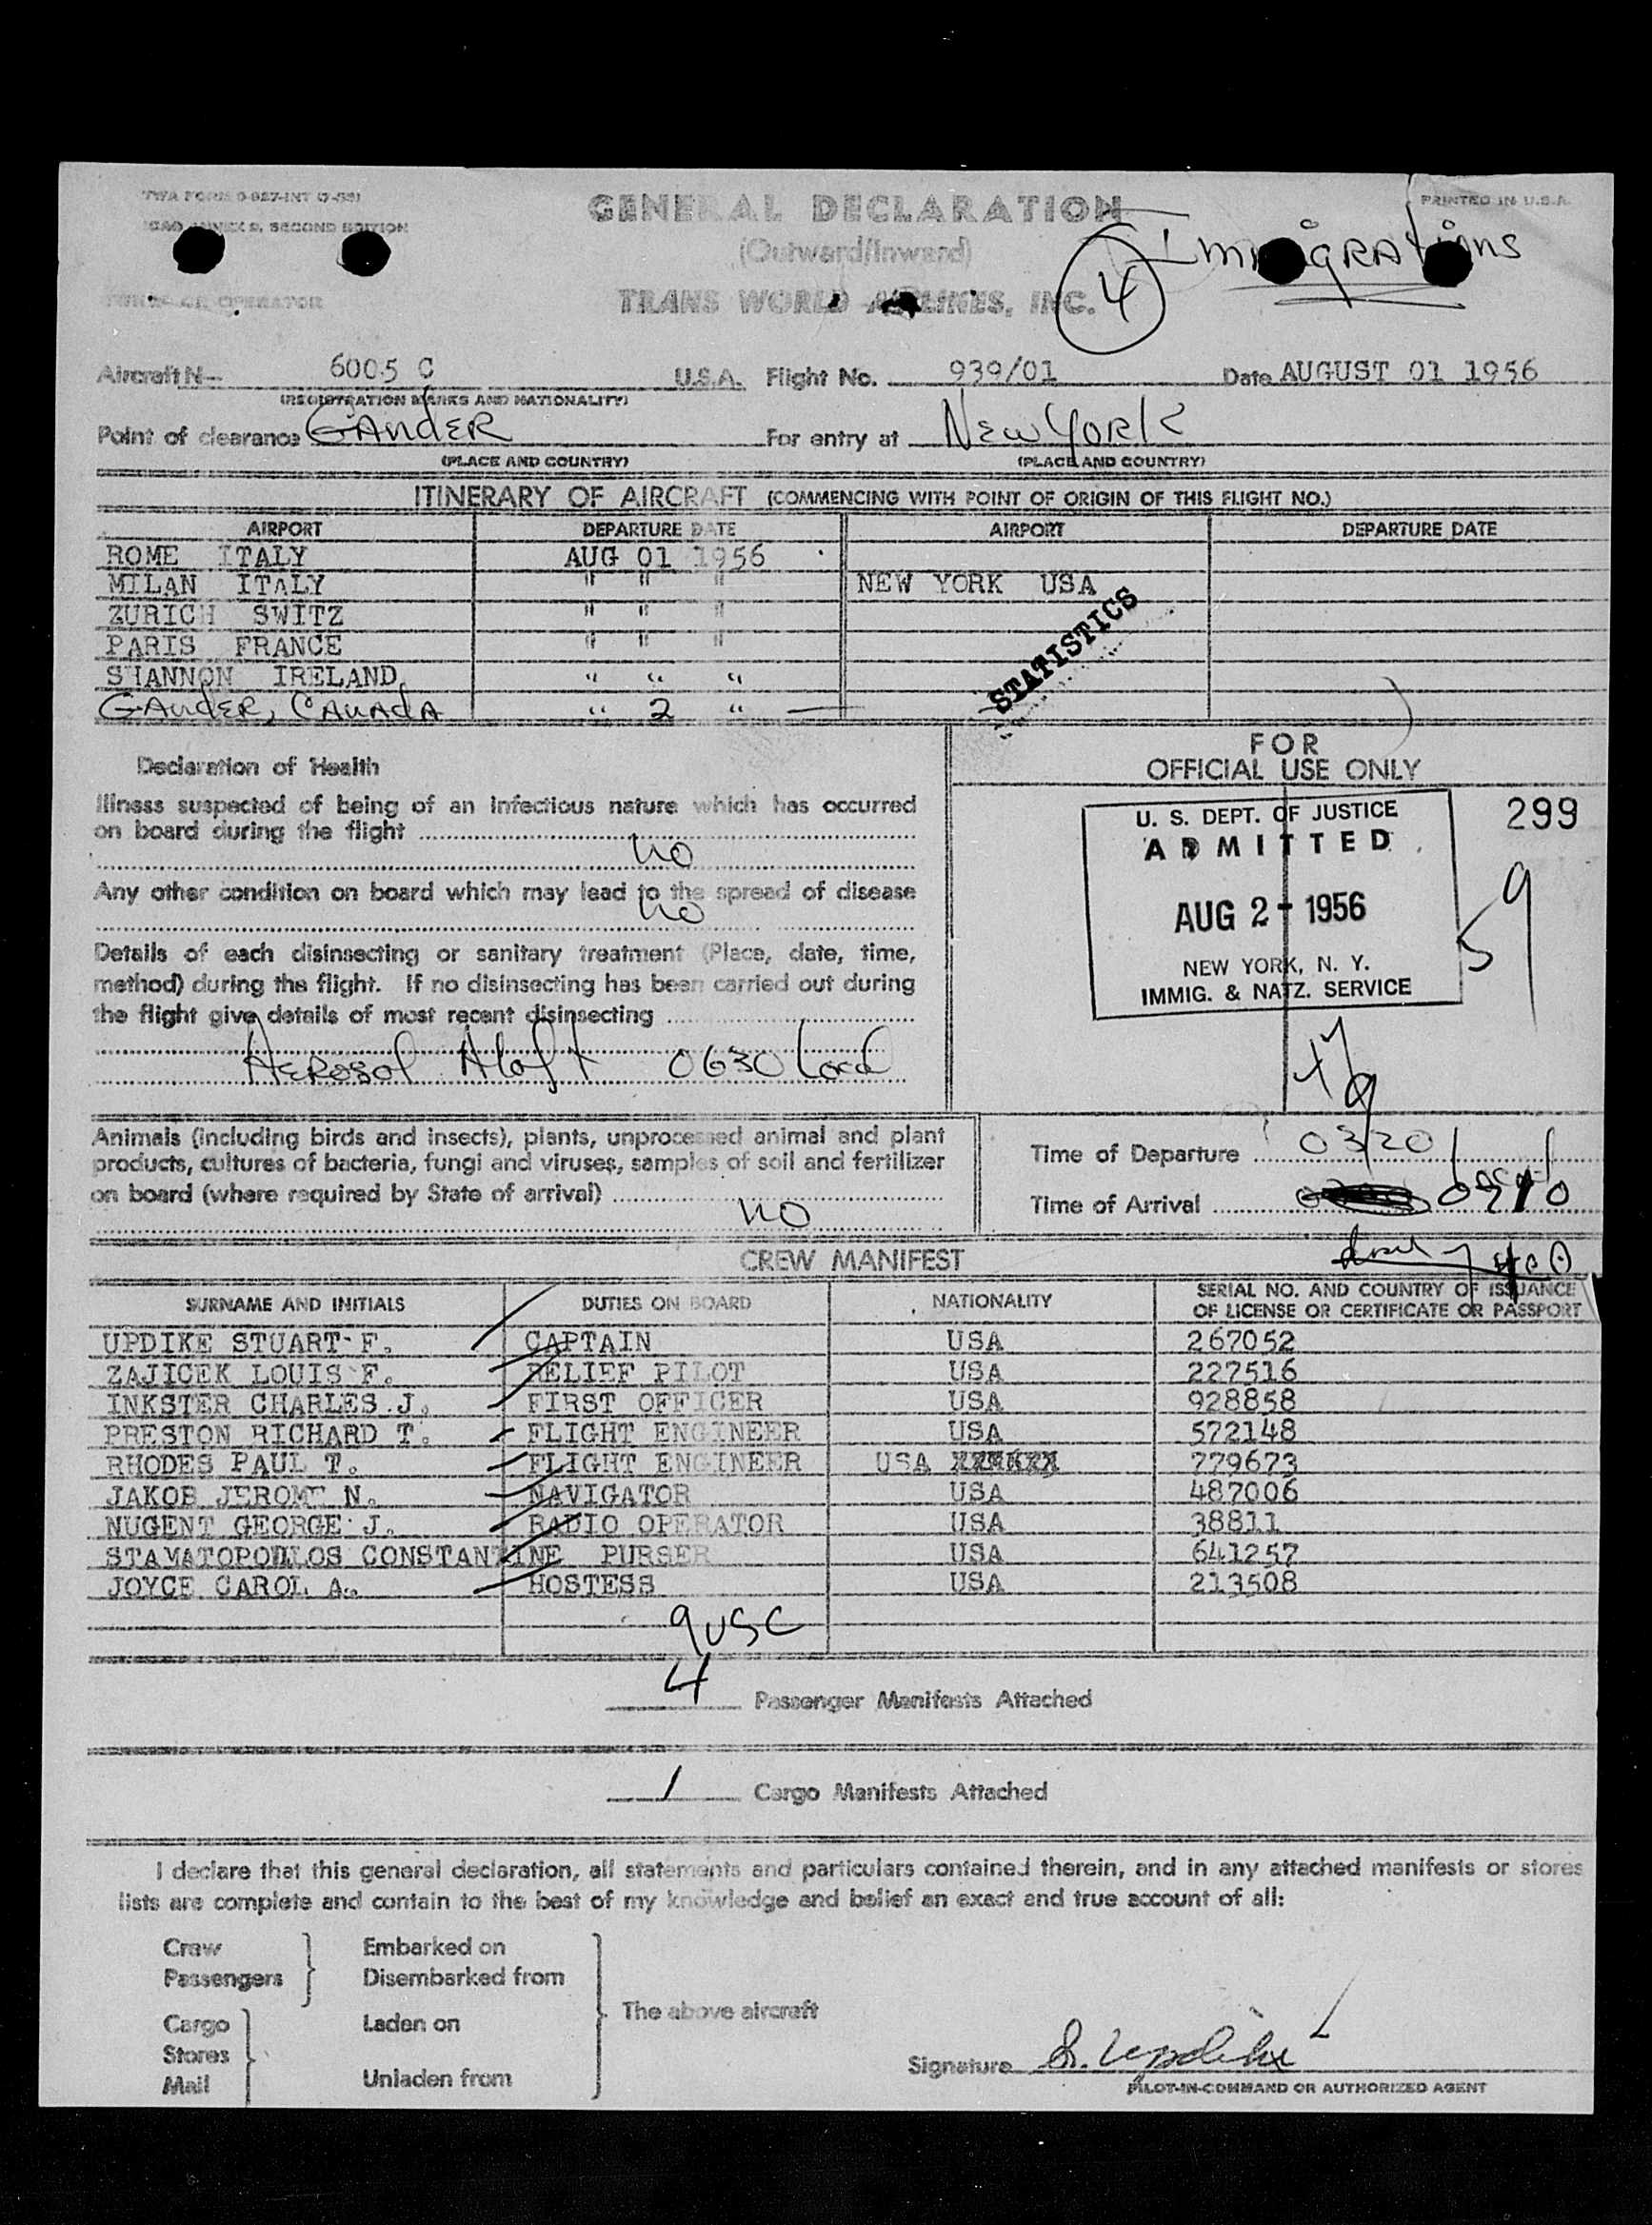 TWA FORM O-927-INT (7-55)
ICAO ANNEX 9, SECOND EDITION
OWNER OR OPERATOR
GENERAL DECLARATION
(Outward/Inward)
TRANS WORLD AIRLINES, INC.
PRINTED IN U.S.A.
4
Immigrations
Aircraft N— 6005 C U.S.A. Flight No. 939/01 Date AUGUST 01 1956
(REGISTRATION MARKS AND NATIONALITY)
Point of clearance GANDER For entry at NEW YORK
(PLACE AND COUNTRY) (PLACE AND COUNTRY)
ITINERARY OF AIRCRAFT (COMMENCING WITH POINT OF ORIGIN OF THIS FLIGHT NO.)
AIRPORT DEPARTURE DATE AIRPORT DEPARTURE DATE
ROME ITALY AUG 01 1956
MILAN ITALY " " " NEW YORK USA
ZURICH SWITZ " " "
PARIS FRANCE " " "
SHANNON IRELAND " " "
GANDER, CANADA " 2 "
STATISTICS
Declaration of Health
Illness suspected of being of an infectious nature which has occurred
on board during the flight
no
Any other condition on board which may lead to the spread of disease
no
Details of each disinsecting or sanitary treatment (Place, date, time,
method) during the flight. If no disinsecting has been carried out during
the flight give details of most recent disinsecting
Aerosol Aloft 0630 Local
FOR
OFFICIAL USE ONLY
U. S. DEPT. OF JUSTICE
ADMITTED
AUG 2 - 1956
NEW YORK, N. Y.
IMMIG. & NATZ. SERVICE
299
59
Animals (including birds and insects), plants, unprocessed animal and plant
products, cultures of bacteria, fungi and viruses, samples of soil and fertilizer
on board (where required by State of arrival)
no
Time of Departure 0320
Time of Arrival 0910
CREW MANIFEST
SURNAME AND INITIALS DUTIES ON BOARD NATIONALITY SERIAL NO. AND COUNTRY OF ISSUANCE
OF LICENSE OR CERTIFICATE OR PASSPORT
UPDIKE STUART F. CAPTAIN USA 267052
ZAJICEK LOUIS F. RELIEF PILOT USA 227516
INKSTER CHARLES J. FIRST OFFICER USA 928858
PRESTON RICHARD T. FLIGHT ENGINEER USA 572148
RHODES PAUL T. FLIGHT ENGINEER USA 779673
JAKOB JEROME N. NAVIGATOR USA 487006
NUGENT GEORGE J. RADIO OPERATOR USA 38811
STAMATOPOULOS CONSTANTINE PURSER USA 641257
JOYCE CAROL A. HOSTESS USA 213508
9 USC
4 Passenger Manifests Attached
1 Cargo Manifests Attached
I declare that this general declaration, all statements and particulars contained therein, and in any attached manifests or stores
lists are complete and contain to the best of my knowledge and belief an exact and true account of all:
Crew Embarked on
Passengers Disembarked from
The above aircraft
Cargo Laden on
Stores
Mail Unladen from
Signature S. Updike
PILOT-IN-COMMAND OR AUTHORIZED AGENT